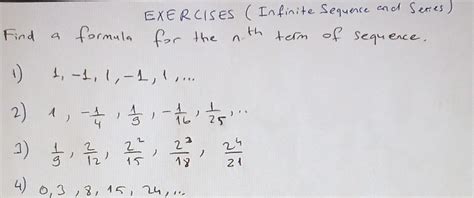 EXERCISES (Infinite Sequence and Series)
Find a formula for the n.th term of sequence.
1) 1, -1, 1, -1, 1, ...
2) 1, -1/4, 1/9, -1/16, 1/25, ...
3) 1/9, 2/12, 2²/15, 2³/18, 2⁴/21
4) 0, 3, 8, 15, 24, ...